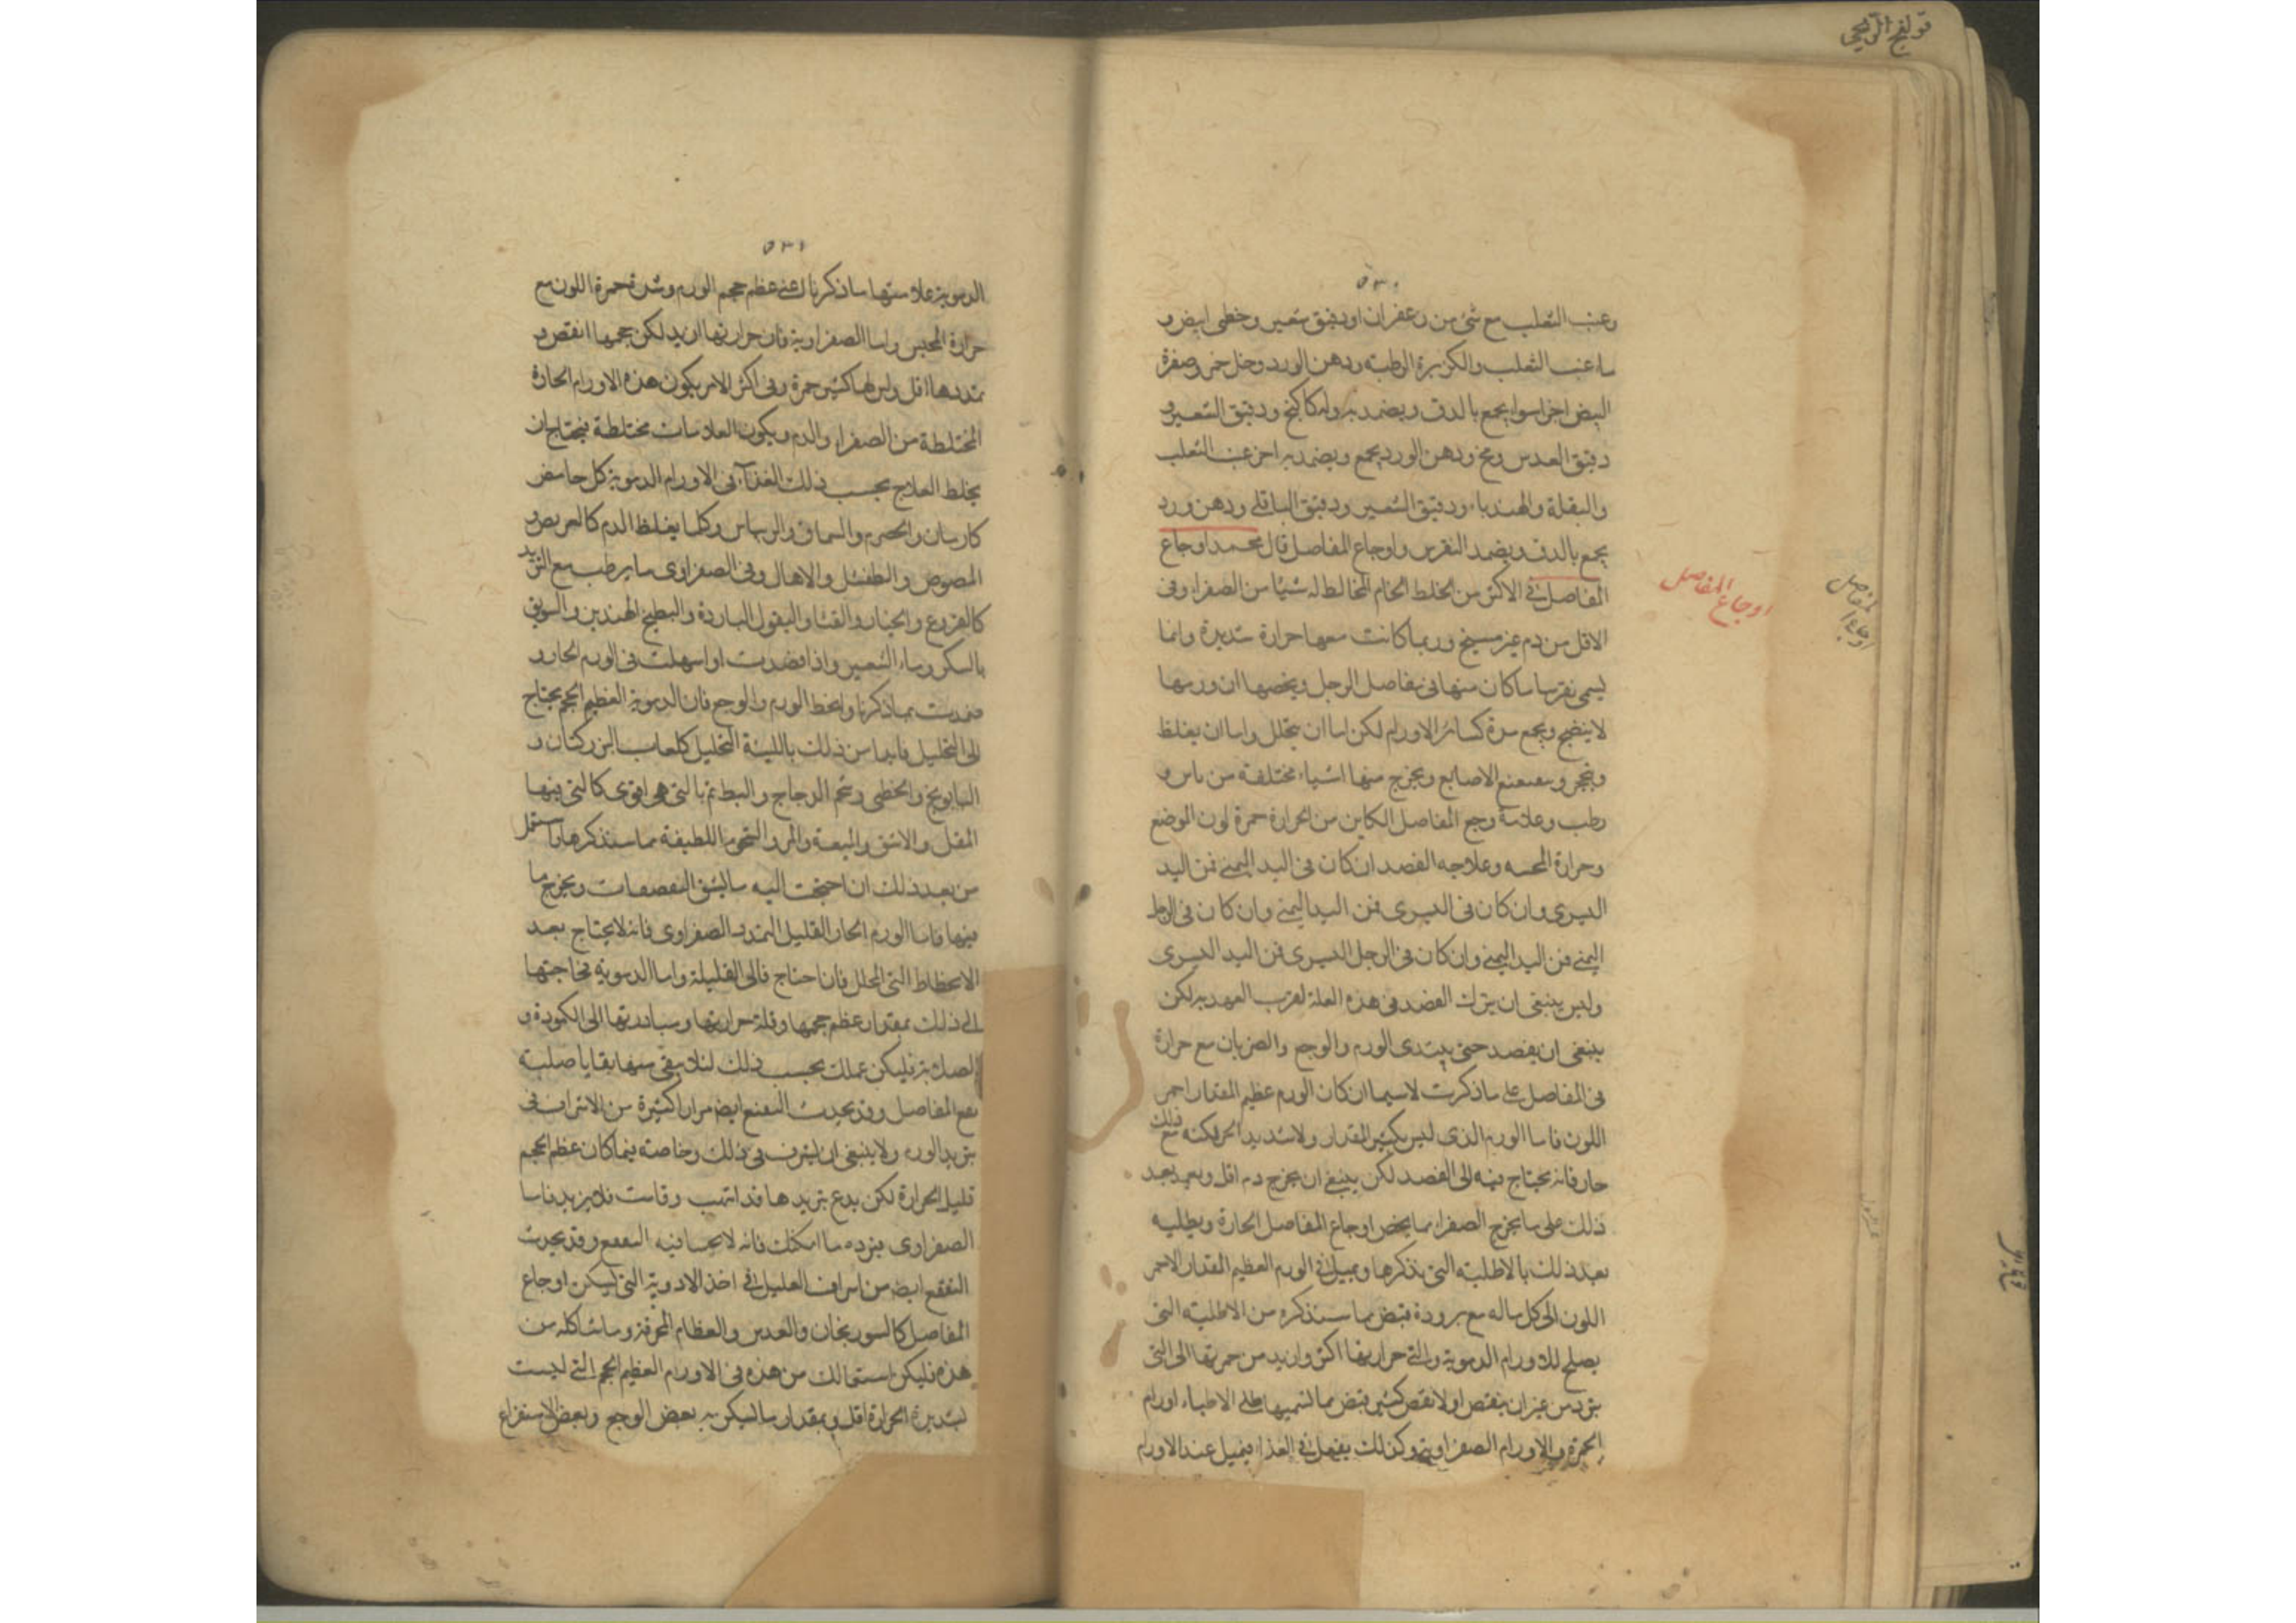 قولنج الريحي
٥٣٠
وعنب الثعلب مع شئ من زعفران او دقيق شعير وخطمى ابيض و
ماء عنب الثعلب والكزبرة الرطبة ودهن الورد وخل خمر وصفرة
البيض اجزا سوا يجمع بالدق ويضمد به وله كاكنج ودقيق الشعير و
دقيق العدس ومخ ودهن الورد يجمع ويضمد به اخر عنب الثعلب
والبقلة والهندباء ودقيق الشعير ودقيق الباقلى ودهن ورد
يجمع بالدق ويضمد النقرس واوجاع المفاصل قال محمد اوجاع
المفاصل فى الاكثر من الخلط الخام المخالط له شيئا من الصفرا وفى
الاقل من دم غير مسيخ وربما كانت معها حرارة شديدة وانما
يسمى نقرسا ما كان منها فى مفاصل الرجل ويخصها ان ورمها
لا ينضج ويجمع مدة كسائر الاورام لكن اما ان يتحلل واما ان يغلظ
ويحجر الاصابع ويخرج منها اشياء مختلفة من يابس و
رطب وعلامة وجع المفاصل الكاين من الحرارة حمرة لون الموضع
وحرارة المجسه وعلاجه الفصد ان كان فى اليد اليمنى فمن اليد
اليسرى وان كان فى اليسرى فمن اليد اليمنى وان كان فى الرجل
اليمنى فمن اليد اليمنى وان كان فى الرجل اليسرى فمن اليد اليسرى
وليس ينبغى ان يترك الفصد فى هذه العلة لقرب العهد به لكن
ينبغى ان يفصد حتى يبتدى الورم والوجع والضربان مع حرارة
فى المفاصل على ما ذكرت لاسيما ان كان الورم عظيم المقدار احمر
اللون فاما الورم الذى ليس بكثير المقدار ولا شديد الحمر لكنه مع ذلك
حار فانه يحتاج فيه الى الفصد لكن ينبغى ان يخرج دم اقل ويعمد بعد
ذلك على ما يخرج الصفرا مما يخص اوجاع المفاصل الحارة ويطليه
بعد ذلك بالاطلية التى نذكرها ويميل فى الورم العظيم المقدار الاحمر
اللون الى كل ماله مع برودة قبض مما سنذكره من الاطلية التى
يصلح للاورام الدموية والتى حرارتها اكثر وازيد من حمرتها الى التى
تبرد من غير ان ينقص اولا نقص كثير قبض مما تسميها الاطباء اورام
الحمرة والاورام الصفراوية وكذلك يفعل فى الغذا فيميل عند الاورام
اوجاع المفاصل
اوجاع المفاصل
٥٣١
الدموية علامتها ما ذكرناك اعنى عظم حجم الورم وشدة حمرة اللون مع
حرارة المجس واما الصفراوية فان حرارتها ازيد لكن حجمها انقص و
تمددها اقل وليس لها كثير حمرة وفى اكثر الامر يكون هذه الاورام الحارة
المختلطة من الصفرا والدم ويكون العلامات مختلطة فيحتاج ان
يخلط العلاج بحسب ذلك الغذآ فى الاورام الدموية كل حامض
كارمان والحصرم والسماق والريباس وكلما يغلظ الدم كالعريض و
المصوص والطفشل والاهال وفى الصفراوى ما يرطب مع التبريد
كالقرع والخيار والقثا والبقول الباردة والبطيخ الهندى والسويق
بالسكر وماء الشعير واذا فصدت او اسهلت فى الورم الحار و
ضمدت بما ذكرنا وانحط الورم والوجع فان الدموية العظيم الحجم يحتاج
الى التحليل فابدا من ذلك باللينة التحليل كلعاب البزر كتان و
البابونج والخطمى وشحم الدجاج والبط ثم بالتى هى اقوى كالتى فيها
المقل والاشق والميعة والمر والشحوم اللطيفة مما سنذكرها واستعمل
من بعد ذلك ان احتجت اليه ما يشق التعقعات ويخرج ما
فيها فاما الورم الحار القليل التمدد الصفراوى فانه لا يحتاج بعد
الانحطاط التى المحلل فان احتاج فالى القليلة واما الدموية فحاجتها
الى ذلك بمقدار عظم حجمها وقلة حرارتها ومبادرتها الى الكمودة و
الصلابة فليكن عملك بحسب ذلك لئلا يبقى منها بقايا صلبة
مع المفاصل وقد يحدث التقنع ايضا مرارا كثيرة من الاشراف فى
تبريد الورم ولا ينبغى ان يشرف فى ذلك وخاصة فيما كان عظم الحجم
قليل الحرارة لكن يدع تبريدها قد التهب وقامت فلا يزيد فاما
الصفراوى فبرده ما امكنك فانه لا يحسا فيه وقد يحدث
التقفع ايضا من اسراف العليل فى اخذ الادوية التى تسكن اوجاع
المفاصل كالسورنجان والعدس والعظام المحرقة وما شاكله من
هذه فليكن استعمالك من هذه فى الاورام العظيم الحجم التى ليست
لشديدة الحرارة اقل وبمقدار ما ليسكن به بعض الوجع وبعض الاستفراغ